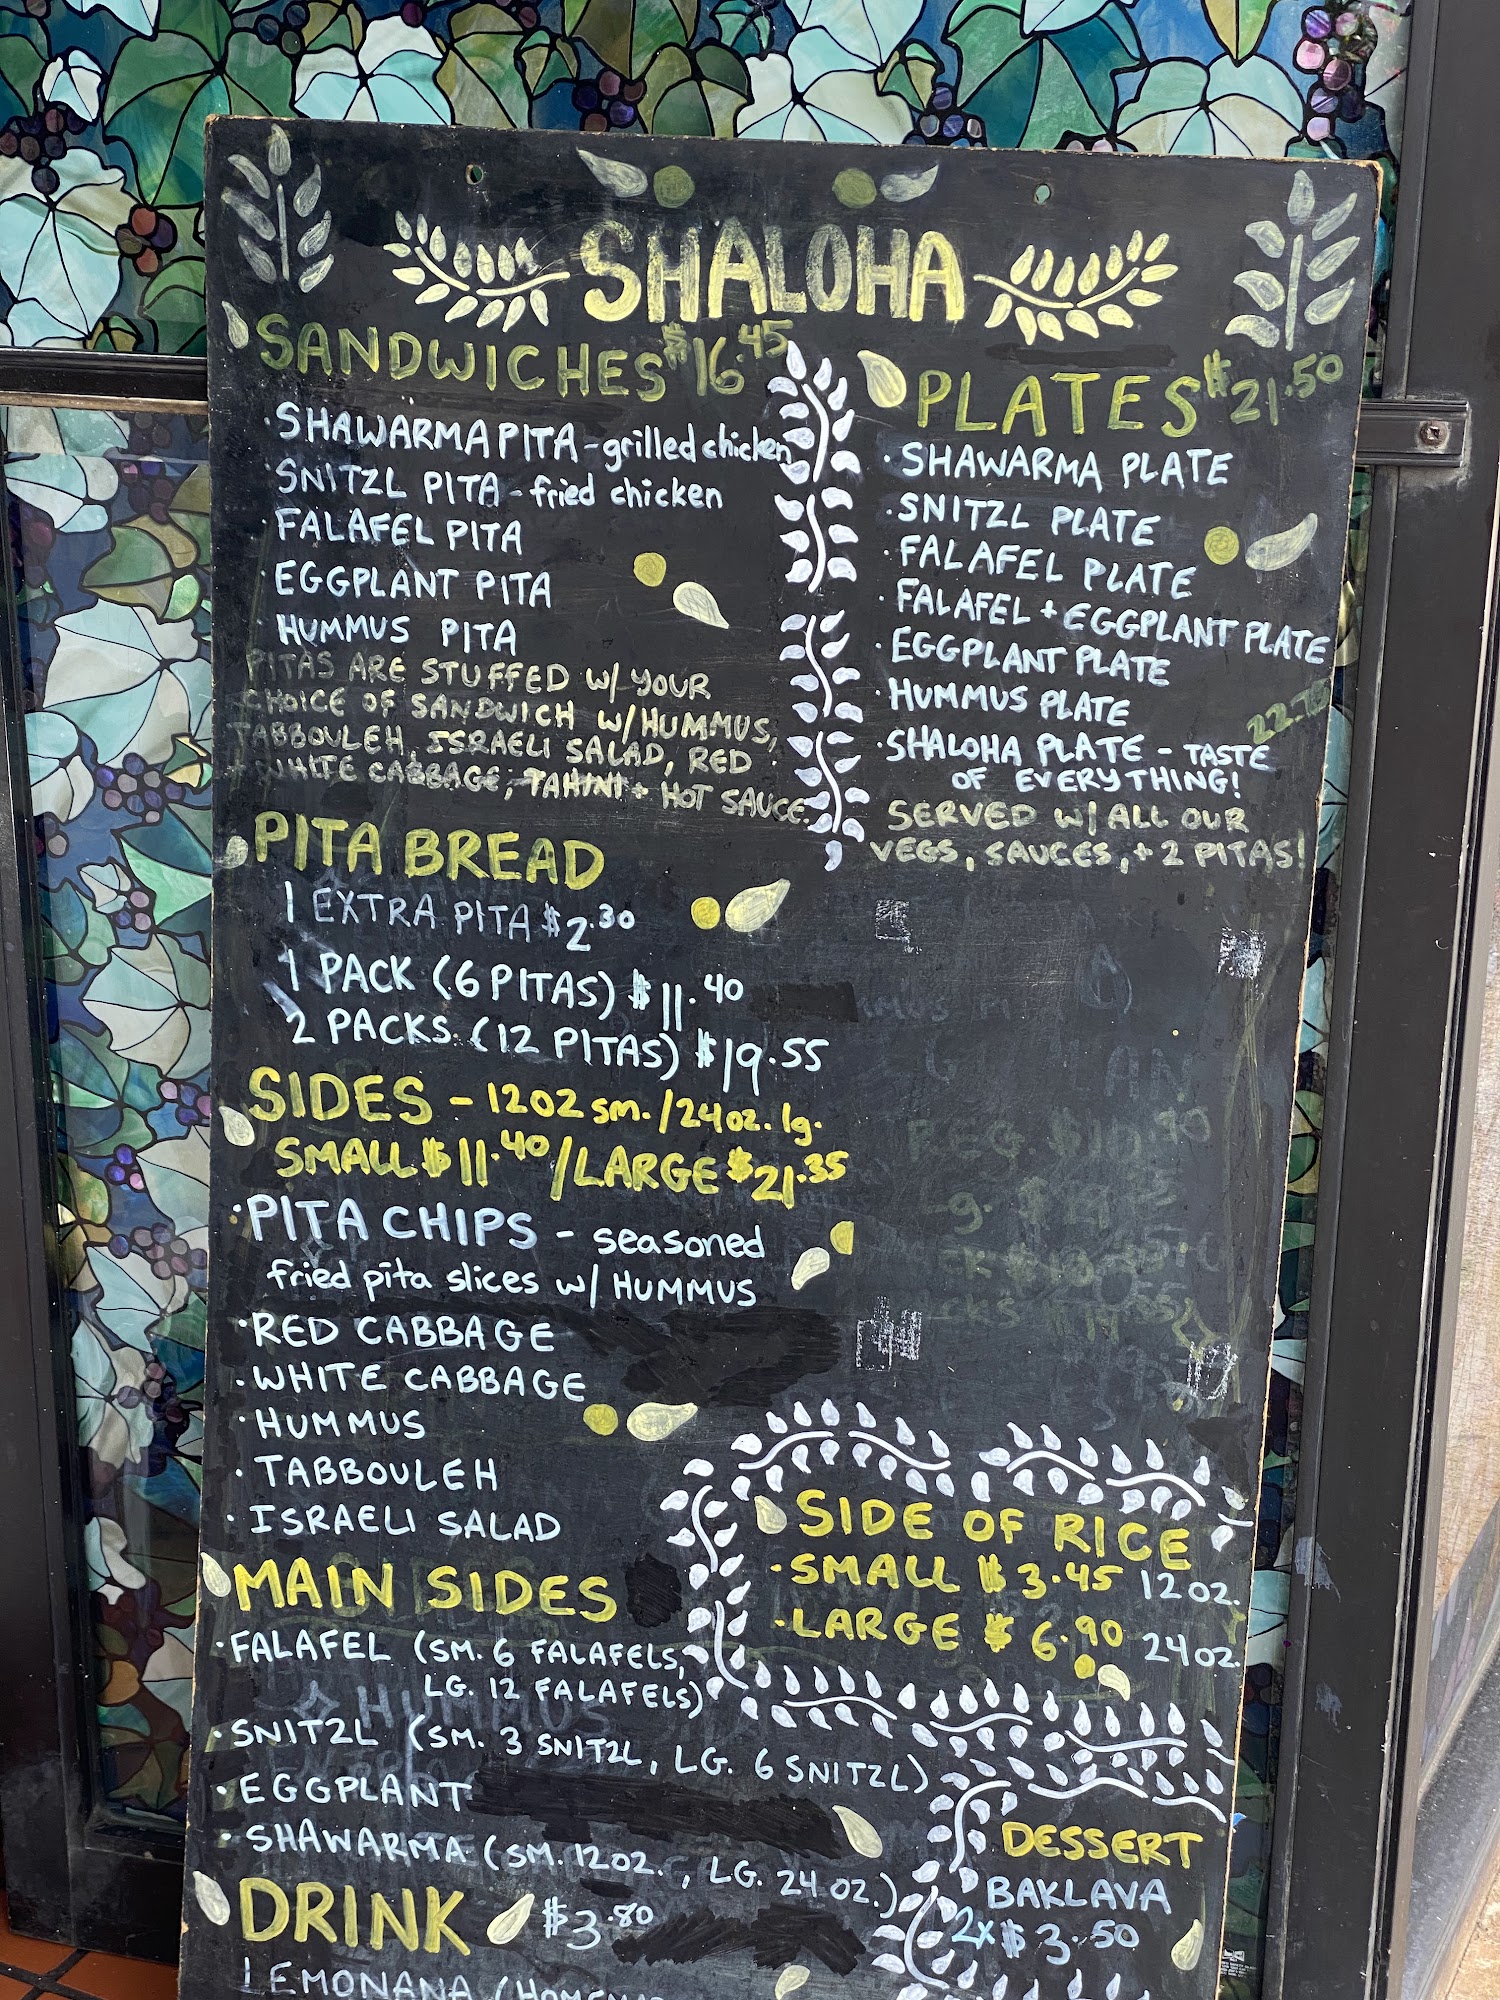 SHALOHA
SANDWICHES $16.45
· SHAWARMA PITA - grilled chicken
· SNITZL PITA - fried chicken
· FALAFEL PITA
· EGGPLANT PITA
· HUMMUS PITA
PITAS ARE STUFFED W/ YOUR
CHOICE OF SANDWICH W/ HUMMUS,
TABBOULEH, ISRAELI SALAD, RED
WHITE CABBAGE, TAHINI + HOT SAUCE.
PITA BREAD
1 EXTRA PITA $2.30
1 PACK (6 PITAS) $11.40
2 PACKS (12 PITAS) $19.55
SIDES - 12OZ sm. / 24oz. lg.
SMALL $11.40 / LARGE $21.35
· PITA CHIPS - seasoned
fried pita slices w/ HUMMUS
· RED CABBAGE
· WHITE CABBAGE
· HUMMUS
· TABBOULEH
· ISRAELI SALAD
MAIN SIDES
· FALAFEL (SM. 6 FALAFELS,
LG. 12 FALAFELS)
· SNITZL (SM. 3 SNITZL, LG. 6 SNITZL)
· EGGPLANT
· SHAWARMA (SM. 12OZ., LG. 24 OZ.)
DRINK $3.80
LEMONANA
PLATES $21.50
· SHAWARMA PLATE
· SNITZL PLATE
· FALAFEL PLATE
· FALAFEL + EGGPLANT PLATE
· EGGPLANT PLATE
· HUMMUS PLATE
· SHALOHA PLATE - TASTE
OF EVERYTHING!
SERVED W/ ALL OUR
VEGS, SAUCES, + 2 PITAS!
SIDE OF RICE
· SMALL $3.45 12OZ.
· LARGE $6.90 24OZ.
DESSERT
BAKLAVA
2x $3.50